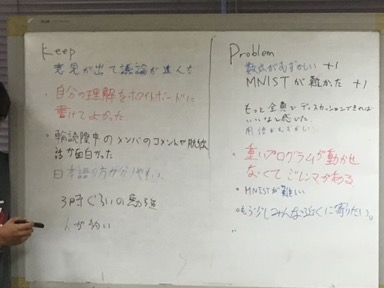 Keep
意見が出て議論が進んだ
・自分の理解をホワイトボードに
書けてよかった
・輪読中のメンバのコメントや
話が面白かった
日本語の方が分かりやすい
3時ぐらいの
人が多い
Problem
数式がむずかしい +1
MNISTが難かった +1
もっと全員でディスカッションできれば
いいなと感じた
用語がむずかしい
・重いプログラムが動かせ
なくてジレンマがある
・MNISTが難しい
もう少しみんな近くに寄りたい。